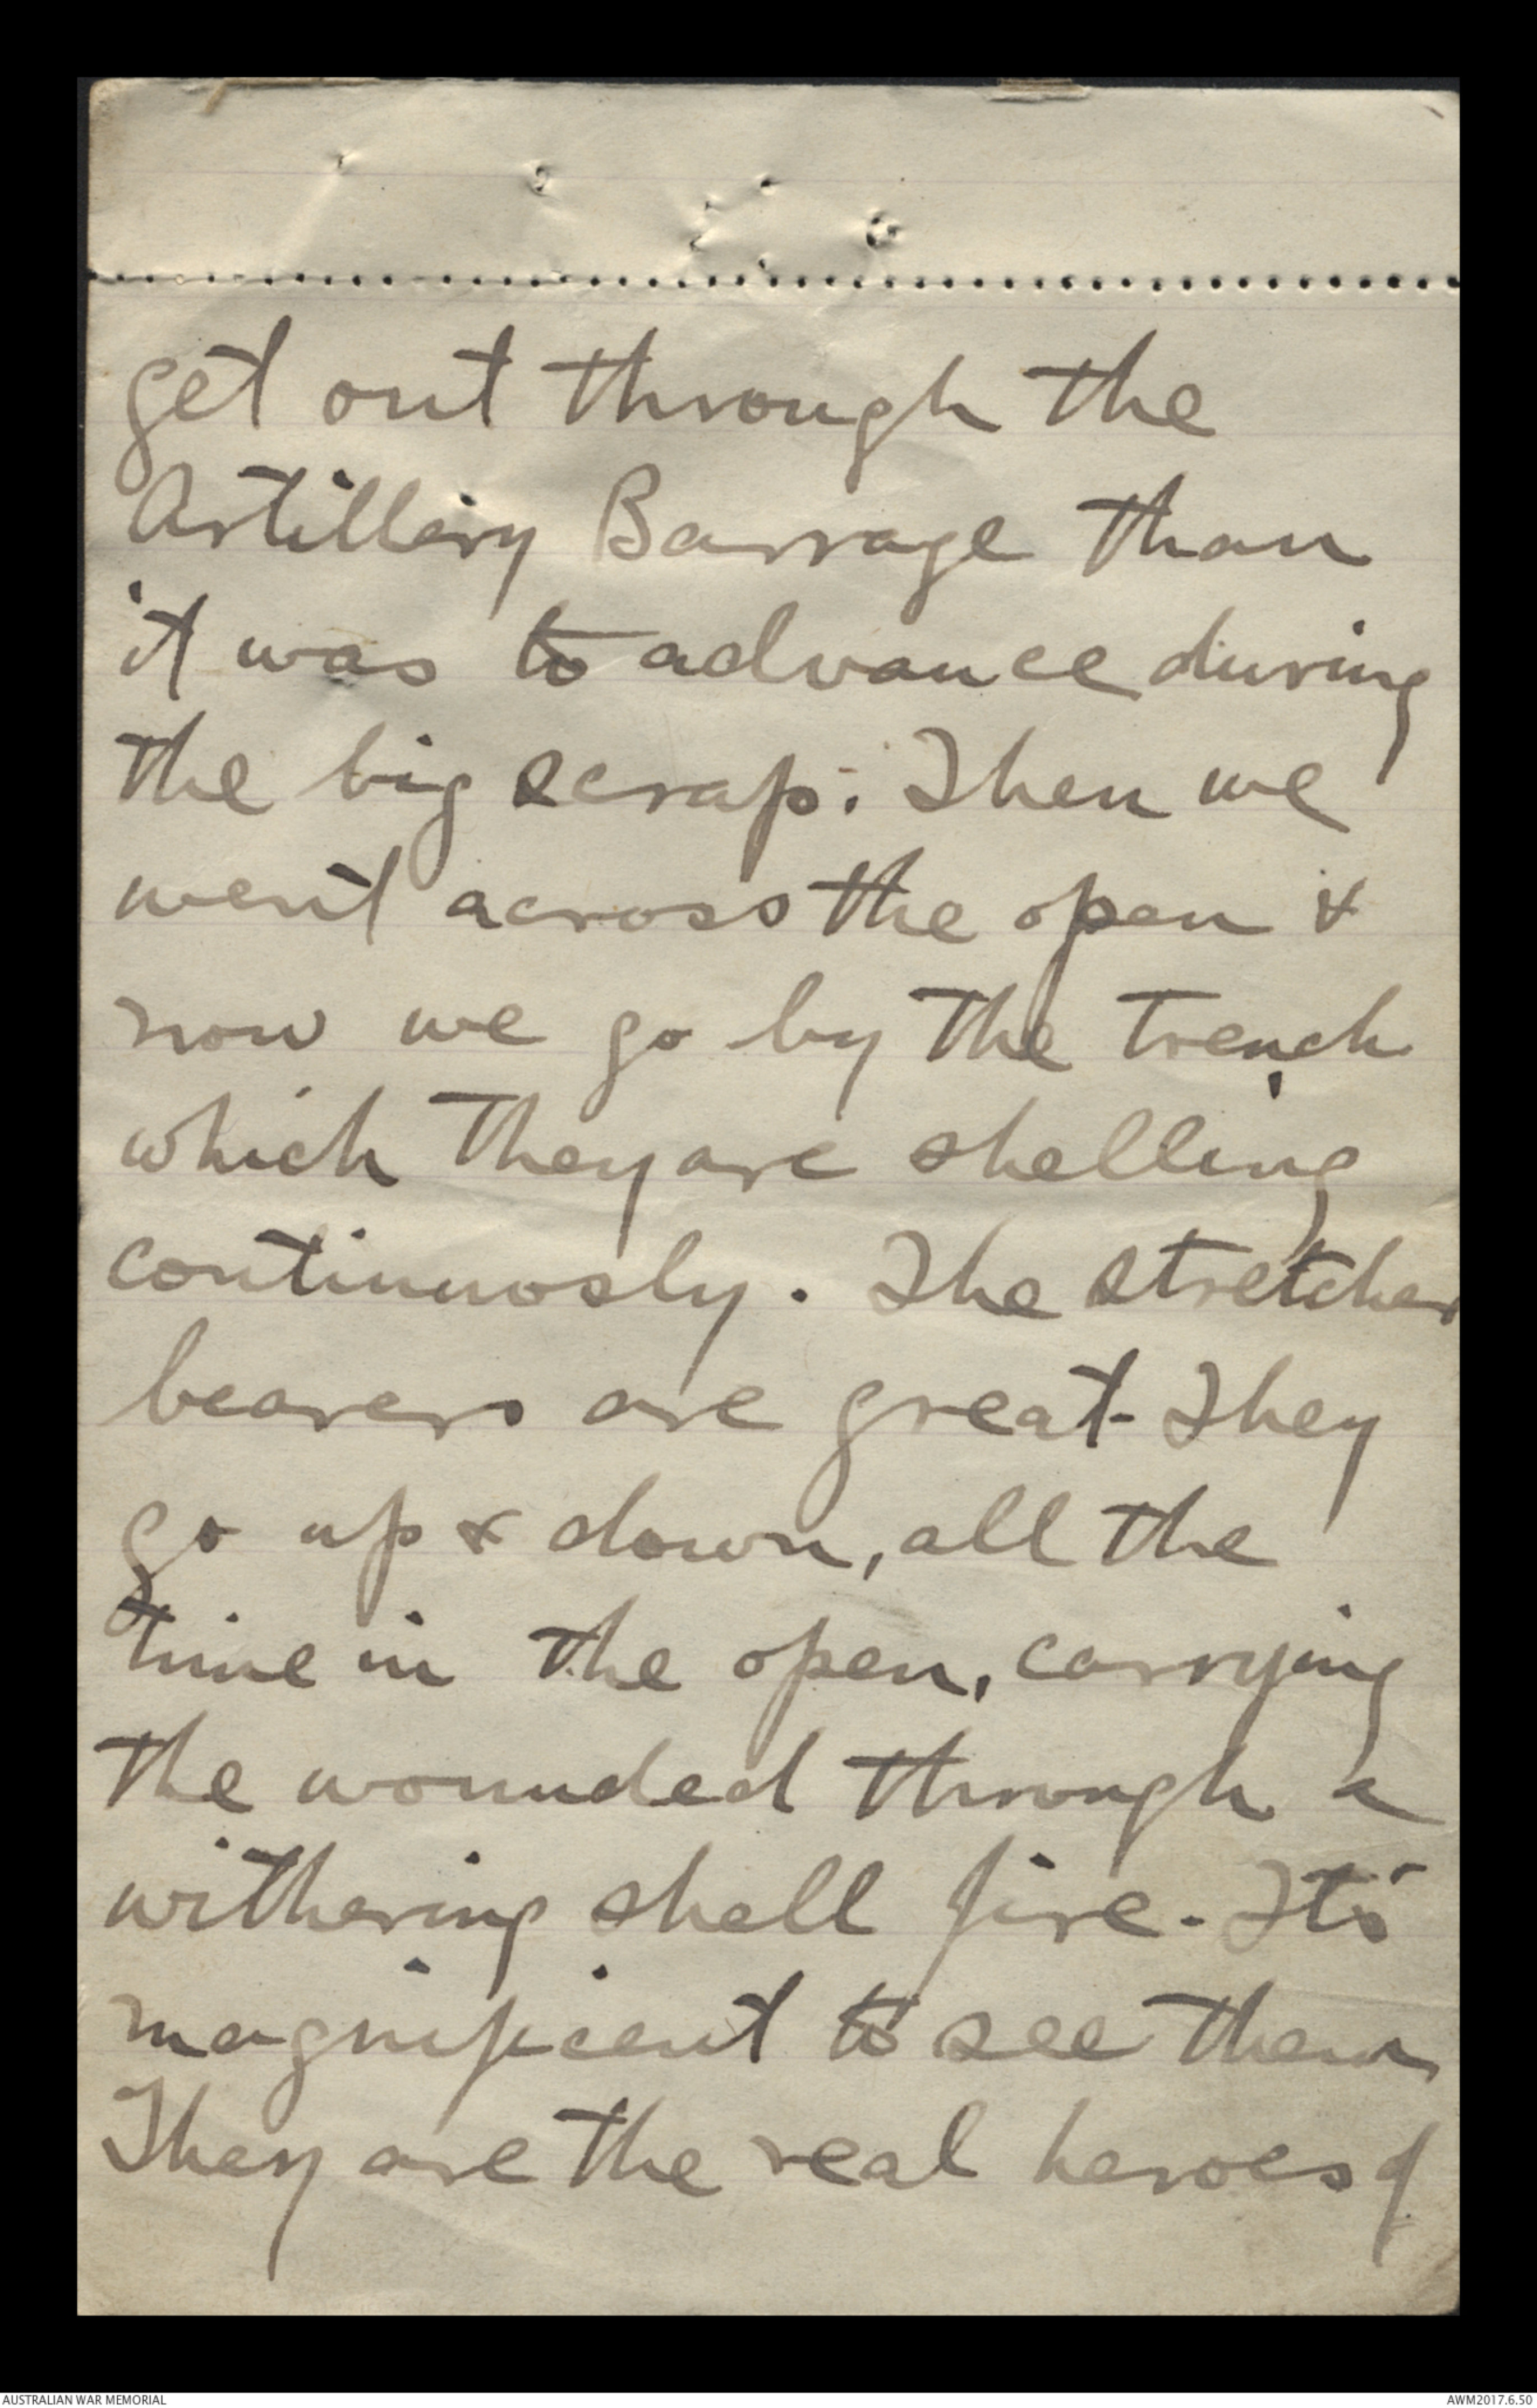 get out through the
Artillery Barrage than
it was to advance during
the big scrap. Then we
went across the open &
now we go by the trench
which they are shelling
continuosly. The stretcher
bearers are great. They
go up & down, all the
time in the open, carrying
the wounded through a
withering shell fire. It's
magnificent to see them
They are the real heroes of
AUSTRALIAN WAR MEMORIAL
AWM2017.6.50